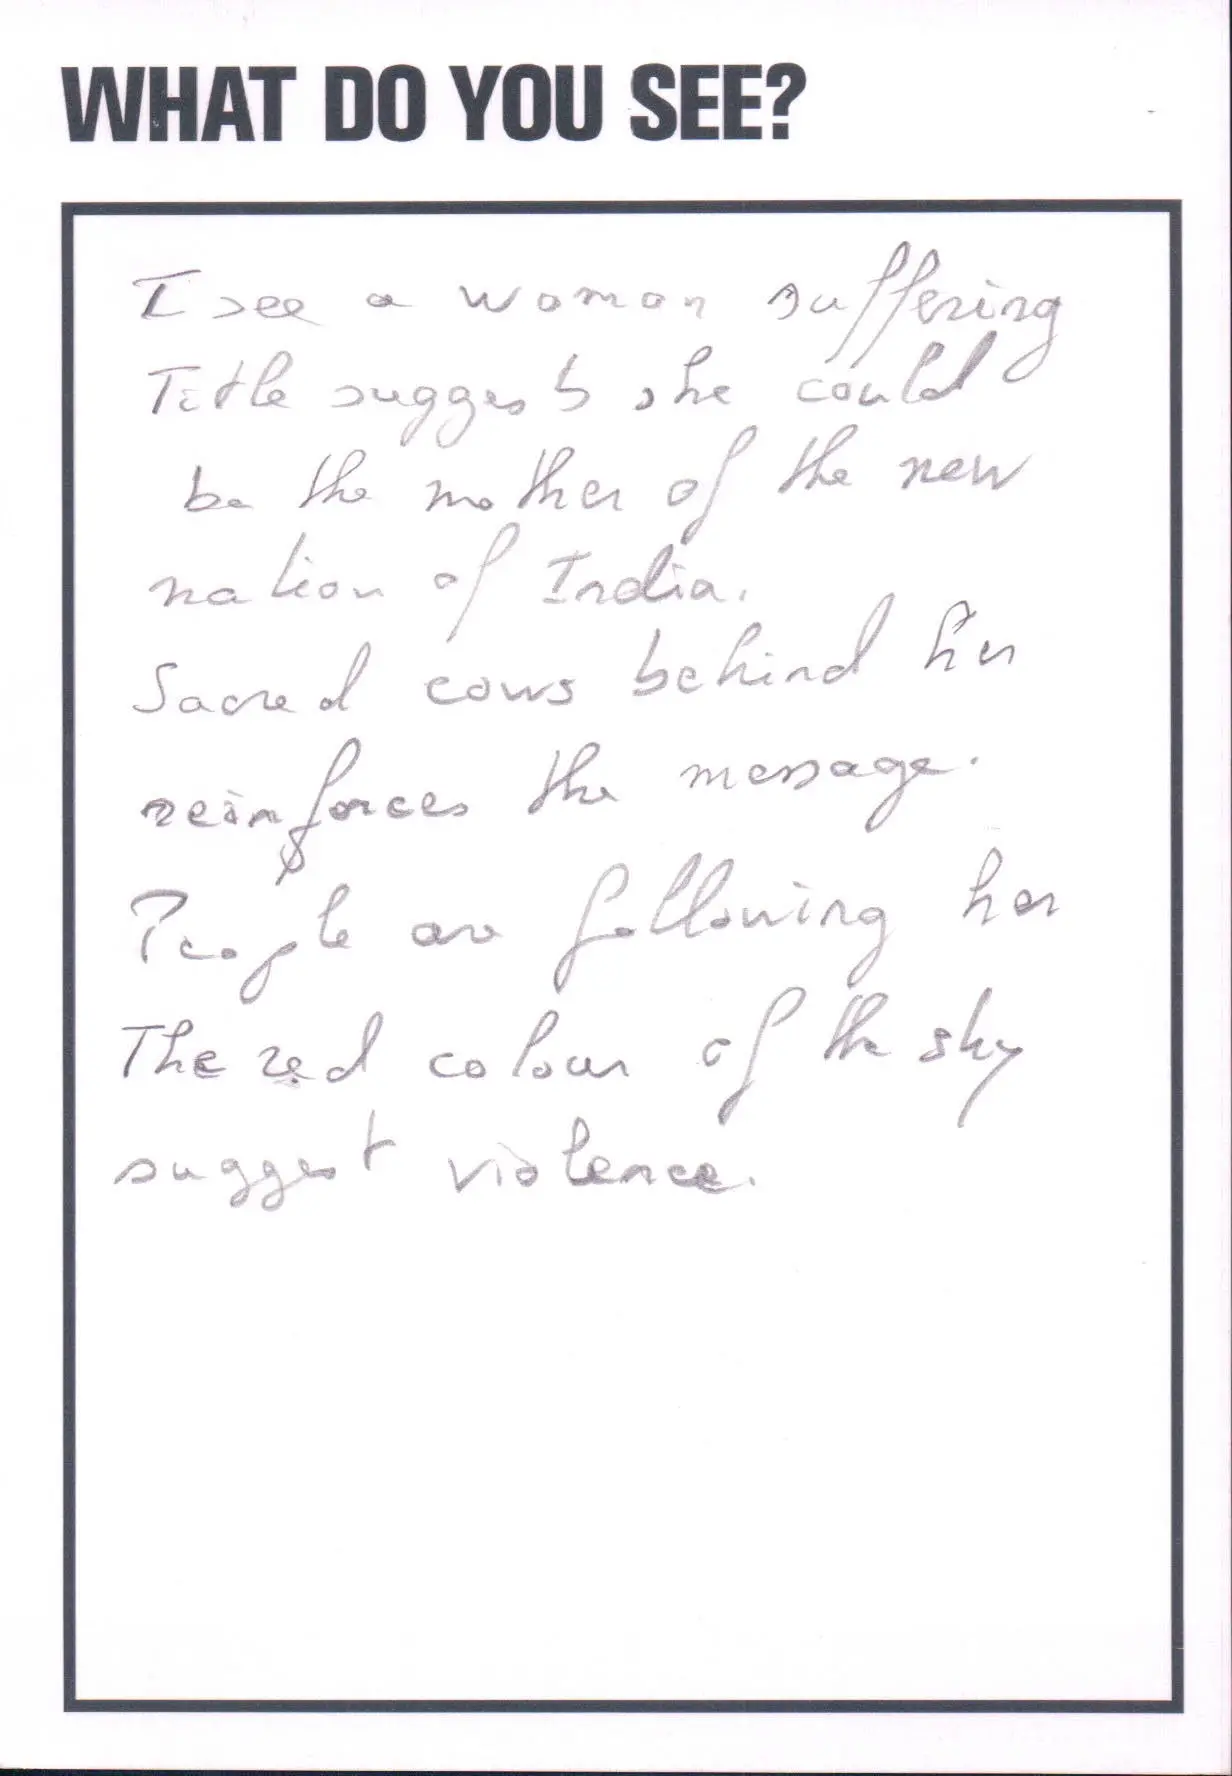 WHAT DO YOU SEE?
I see a woman suffering
Title suggests she could
be the mother of the new
nation of India.
Sacred cows behind her
reinforces the message.
People are following her
The red colour of the sky
suggest violence.